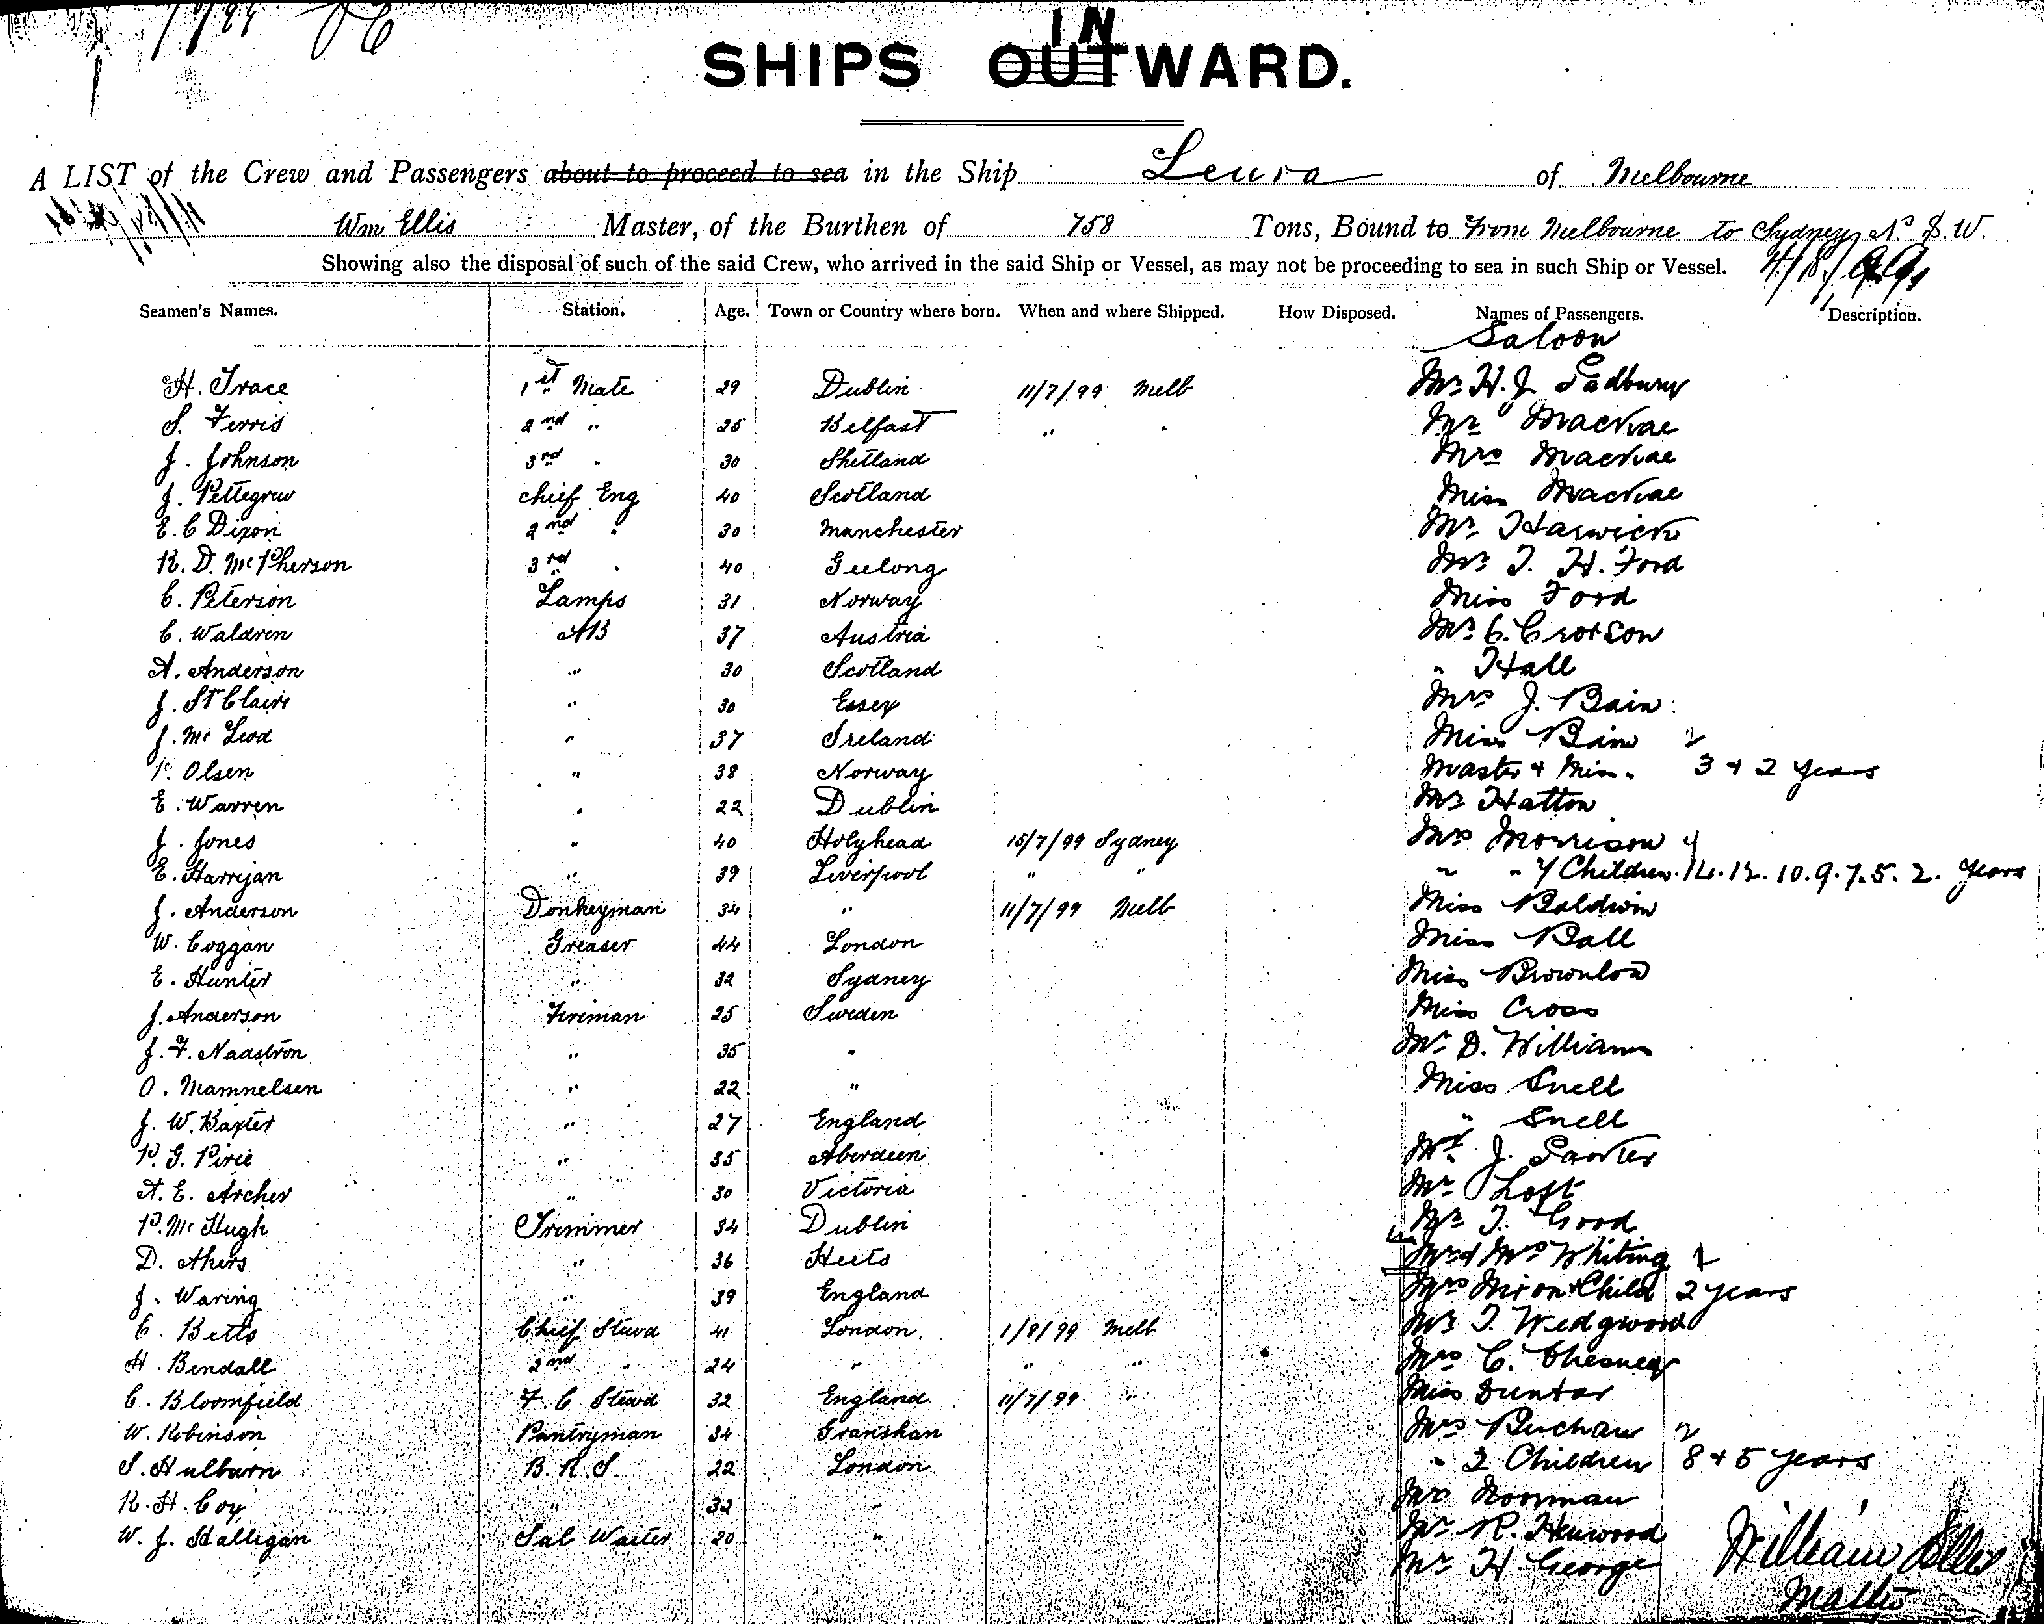 IN
SHIPS OUTWARD.
A LIST of the Crew and Passengers about to proceed to sea in the Ship Leura of Melbourne
Wm Ellis Master, of the Burthen of 758 Tons, Bound to From Melbourne to Sydney N. S. W.
Showing also the disposal of such of the said Crew, who arrived in the said Ship or Vessel, as may not be proceeding to sea in such Ship or Vessel. 4/8/99
Seamen's Names. Station. Age. Town or Country where born. When and where Shipped. How Disposed. Names of Passengers. Description.
Saloon
H. Trace 1st Mate 29 Dublin 11/7/99 Melb Mr H. J. Padbury
S. Ferris 2nd " 25 Belfast " " Mr MacRae
J. Johnson 3rd " 30 Shetland Mrs MacRae
J. Pettegrew chief Eng 40 Scotland Miss MacRae
E. C Dixon 2nd " 30 Manchester Mr Harwick
R. D. McPherson 3rd " 40 Geelong Mr T. H. Ford
C. Peterson Lamps 31 Norway Miss Ford
C. Waldren AB 37 Austria Mr C. Crotson
A. Anderson " 30 Scotland " Hall
J. St Clair " 30 Essex Mrs J. Bain
J. Mc Leod " 37 Ireland Miss Bain
P. Olsen " 38 Norway Master & Miss " 3 & 2 years
E. Warren " 22 Dublin Mr Hatton
J. Jones " 40 Holyhead 15/7/99 Sydney Mrs Morrison
E. Harrijan " 39 Liverpool " " " " 7 Children. 14. 12. 10. 9. 7. 5. 2. years
J. Anderson Donkeyman 34 " 11/7/99 Melb Miss Baldwin
W. Coggan Greaser 44 London Miss Ball
E. Hunter " 32 Sydney Miss Brownlow
J. Anderson Fireman 25 Sweden Miss Cross
J. F. Nadstron " 35 " Mr D. Williams
O. Mamnelsen " 22 " Miss Snell
J. W. Baxter " 27 England " Snell
P. G. Pirie " 35 Aberdeen Mr J.
A. E. Archer " 30 Victoria Mr Loft
P. Mc Hugh Trimmer 34 Dublin Mr T. Good
D. Ahers " 36 Heets Mr & Mrs Whiting
J. Waring " 39 England Mrs Nixon & Child 2 years
C. Betts Chief Stewd 41 London 1/8/99 Melb Mr T. Wedgwood
H. Bendall 2nd " 24 " " " Mrs C. Chesney
C. Bloomfield F. C Stewd 32 England 11/7/99 " Miss Dunbar
W. Robinson Pantryman 34 Mrs Buchan
S. Hulbarn B. R. S. 22 London " 2 Children 8 & 5 years
R. H. Coy " 32 " Mr Noorman
W. J. Halligan Sal Waiter 20 " Mr R. Henwood
Mr H. George
William Ellis
Master